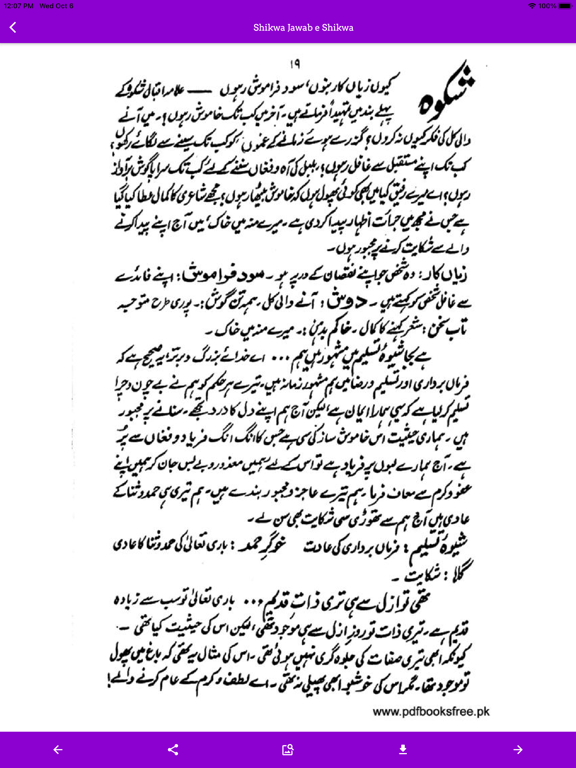 12:07 PM Wed Oct 6
100%
Shikwa Jawab e Shikwa
۱۹
شکوہ
کیوں زیاں کار بنوں، سود فراموش رہوں —— علامہ اقبالؒ شکوہ کے
پہلے بند میں تمہیداً فرماتے ہیں۔ آخر میں کب تک خاموش رہوں؟۔ میں آنے
والی کل کی فکر کیوں نہ کروں؟ گزرے ہوئے زمانے کے غموں کو کب تک سینے سے لگائے رکھوں؟
کب تک اپنے مستقبل سے غافل رہوں؟ بلبل کی آہ و فغاں سننے کے لیے کب تک سراپا گوش بر آواز
رہوں؟ اے میرے رفیق کیا میں بھی کوئی پھول ہوں کہ خاموش بیٹھا رہوں؟ مجھے شاعری کا کمال عطا کیا گیا
ہے جس نے مجھ میں جرأت اظہار پیدا کر دی ہے۔ میرے منہ میں خاک، میں آج اپنے پیدا کرنے
والے سے شکایت کرنے پر مجبور ہوں۔
زیاں کار: وہ شخص جو اپنے نقصان کے درپے ہو۔ سود فراموش: اپنے فائدے
سے غافل شخص کو کہتے ہیں۔ دوش: آنے والی کل، ہمہ تن گوش:۔ پوری طرح متوجہ
تاب سخن: شعر کہنے کا کمال۔ خاکم بدہن:۔ میرے منہ میں خاک۔
ہے بجا شیوۂ تسلیم میں مشہور ہیں ہم ... اے خدائے بزرگ و برتر! یہ صحیح ہے کہ
فرماں برداری اور تسلیم و رضا میں ہم مشہور زمانہ ہیں۔ تیرے ہر حکم کو ہم نے بے چون و چرا
تسلیم کر لیا ہے کہ یہی ہمارا ایمان ہے لیکن آج ہم اپنے دل کا درد تجھے سنانے پر مجبور
ہیں۔ ہماری حیثیت اس خاموش ساز کی سی ہے جس کا انگ انگ فریاد و فغاں سے پُر
ہے۔ آج ہمارے لبوں پر فریاد ہے تو اس کے لیے ہمیں معذور و بے بس جان کر ہمیں اپنے
عفو و کرم سے معاف فرما۔ ہم تیرے عاجز و مجبور بندے ہیں۔ ہم تیری ہی حمد و ثنا کے
عادی ہیں آج ہم سے تھوڑی سی شکایت بھی سن لے۔
شیوۂ تسلیم: فرماں برداری کی عادت خوگر حمد: باری تعالیٰ کی حمد و ثنا کا عادی
گلا: شکایت۔
تھی تو ازل سے ہی تری ذات قدیم ... باری تعالیٰ تو سب سے زیادہ
قدیم ہے۔ تیری ذات تو روز ازل سے ہی موجود تھی، لیکن اس کی حیثیت کیا تھی۔
کیونکہ ابھی تیری صفات کی جلوہ گری نہیں ہوئی تھی۔ اس کی مثال یہ تھی کہ باغ میں پھول
تو موجود تھا۔ مگر اس کی خوشبو ابھی پھیلی نہ تھی۔ اے لطف و کرم کے عام کرنے والے!
www.pdfbooksfree.pk